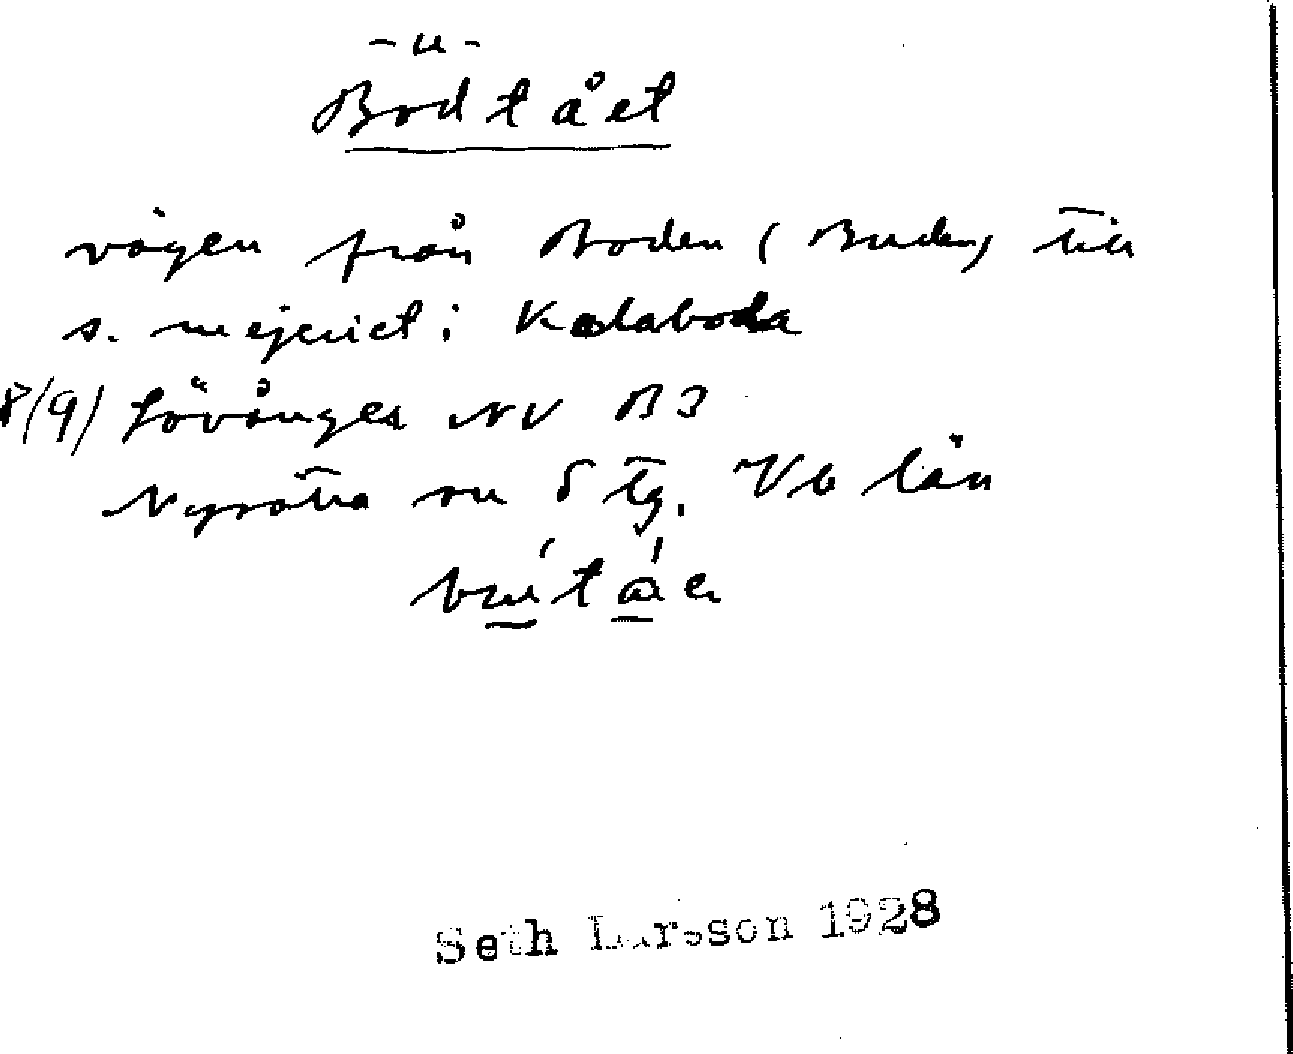 -u-
Bodtået
vägen från Boden (Buden) till
s. mejeriet i Kalaboda
8/9) Lövånger NV B3
Nysätra sn S tg. Vb län
Seth Larsson 1928